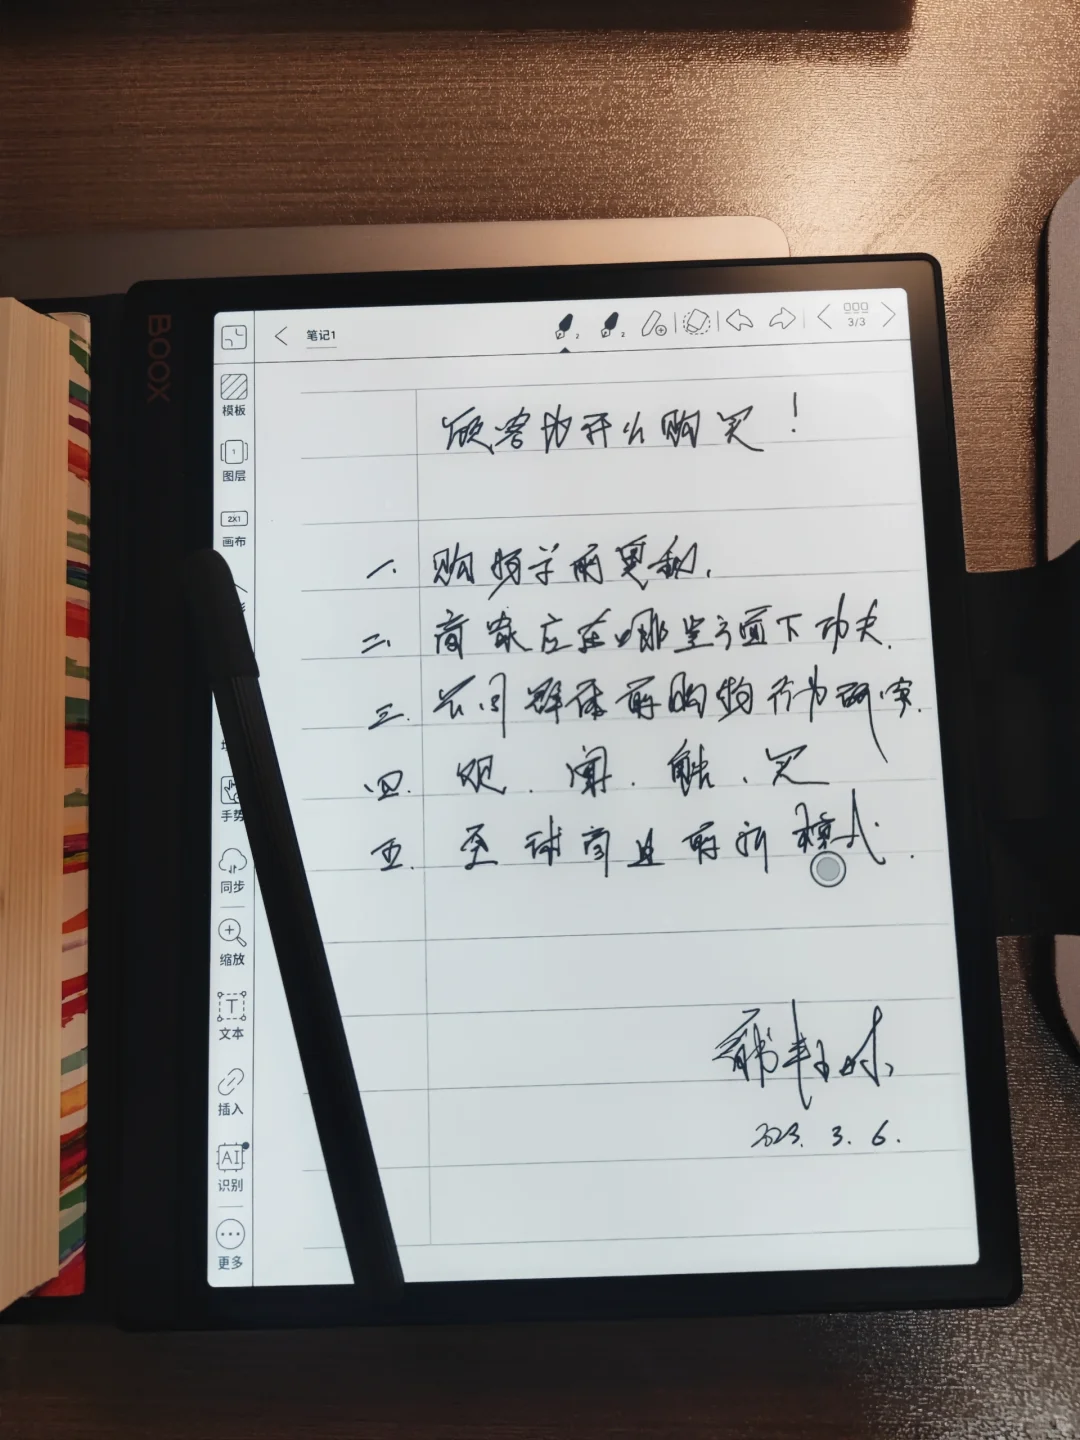 BOOX
笔记1
2
2
3/3
模板
图层
1
画布
2X1
手势
同步
缩放
文本
插入
AI
识别
更多
顾客为什么购买！
一. 购物学的奥秘.
二. 商家应在哪些方面下功夫.
三. 不同群体的购物行为研究.
四. 观. 闻. 触. 买
五. 全球商业的新模式.
2023. 3. 6.